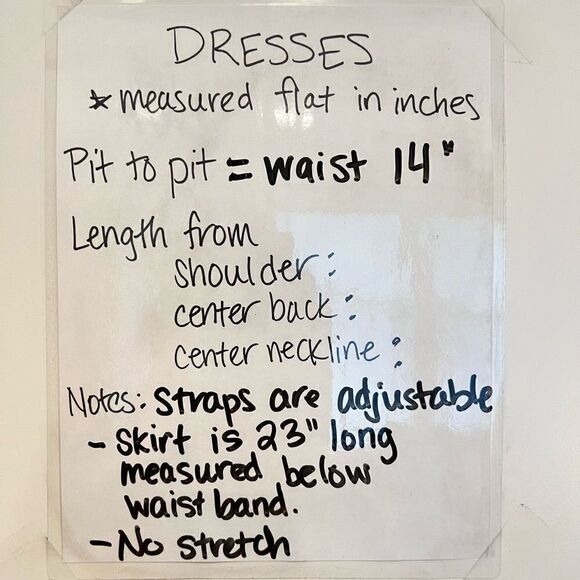 DRESSES
* measured flat in inches
Pit to pit = waist 14"
Length from
shoulder:
center back:
center neckline:
Notes: Straps are adjustable
- Skirt is 23" long
measured below
waist band.
- No stretch